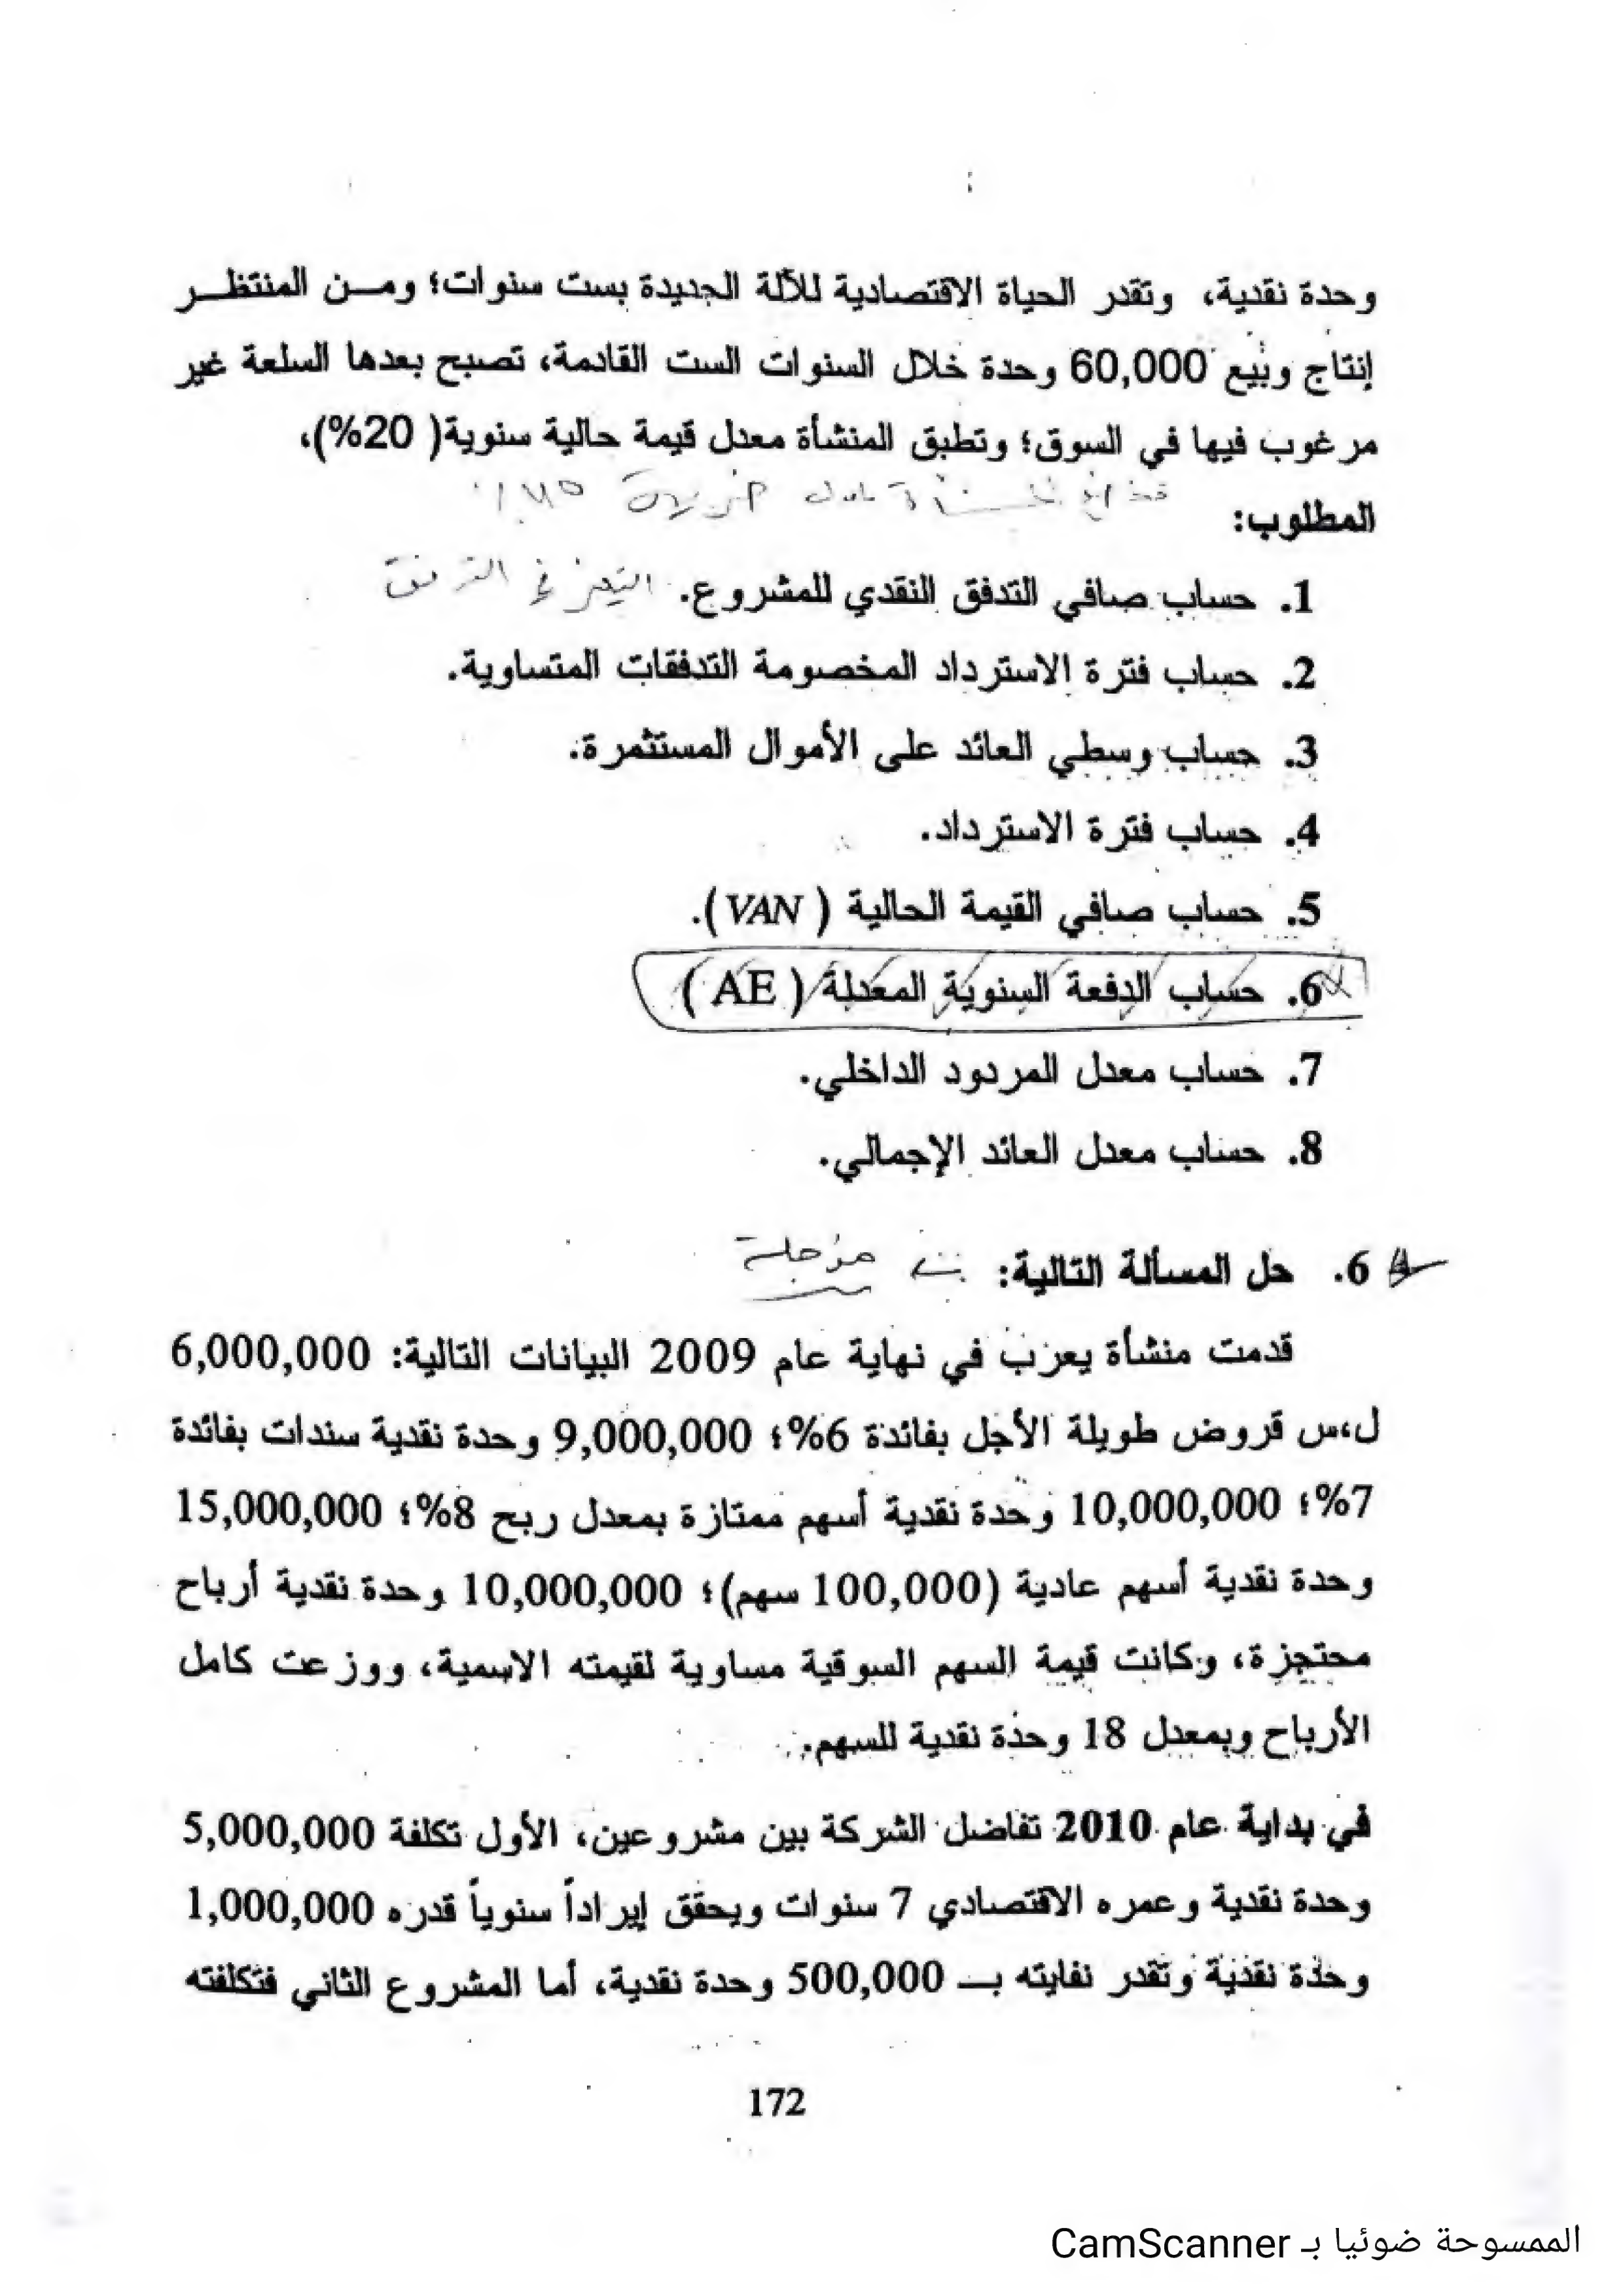 وحدة نقدية، وتقدر الحياة الاقتصادية للآلة الجديدة بست سنوات؛ ومن المنتظر
إنتاج وبيع 60,000 وحدة خلال السنوات الست القادمة، تصبح بعدها السلعة غير
مرغوب فيها في السوق؛ وتطبق المنشأة معدل قيمة حالية سنوية( 20%)،
المطلوب:
1. حساب صافي التدفق النقدي للمشروع.
2. حساب فترة الاسترداد المخصومة التدفقات المتساوية.
3. حساب وسطي العائد على الأموال المستثمرة.
4. حساب فترة الاسترداد.
5. حساب صافي القيمة الحالية (VAN).
6. حساب الدفعة السنوية المعدلة (AE)
7. حساب معدل المردود الداخلي.
8. حساب معدل العائد الإجمالي.
6. حل المسألة التالية: مؤجلة
قدمت منشأة يعرب في نهاية عام 2009 البيانات التالية: 6,000,000
ل،س قروض طويلة الأجل بفائدة 6%؛ 9,000,000 وحدة نقدية سندات بفائدة
7%؛ 10,000,000 وحدة نقدية أسهم ممتازة بمعدل ربح 8%؛ 15,000,000
وحدة نقدية أسهم عادية (100,000 سهم)؛ 10,000,000 وحدة نقدية أرباح
محتجزة، وكانت قيمة السهم السوقية مساوية لقيمته الاسمية، ووزعت كامل
الأرباح وبمعدل 18 وحدة نقدية للسهم.
في بداية عام 2010 تفاضل الشركة بين مشروعين، الأول تكلفة 5,000,000
وحدة نقدية وعمره الاقتصادي 7 سنوات ويحقق إيراداً سنوياً قدره 1,000,000
وحدة نقدية وتقدر نفايته بـ 500,000 وحدة نقدية، أما المشروع الثاني فتكلفته
172
الممسوحة ضوئيا بـ CamScanner